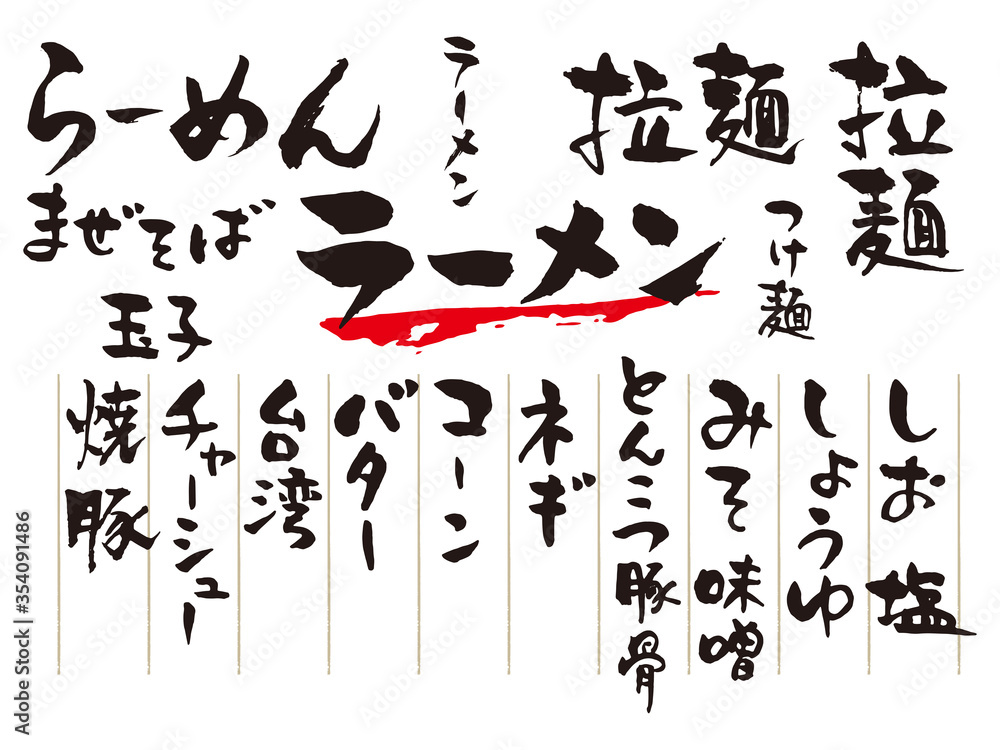 らーめん
ラーメン
拉麺
拉麺
まぜそば
ラーメン
つけ麺
玉子
しお 塩
しょうゆ
みそ 味噌
とんこつ 豚骨
ネギ
コーン
バター
台湾
チャーシュー
焼豚
Adobe Stock | #354091486